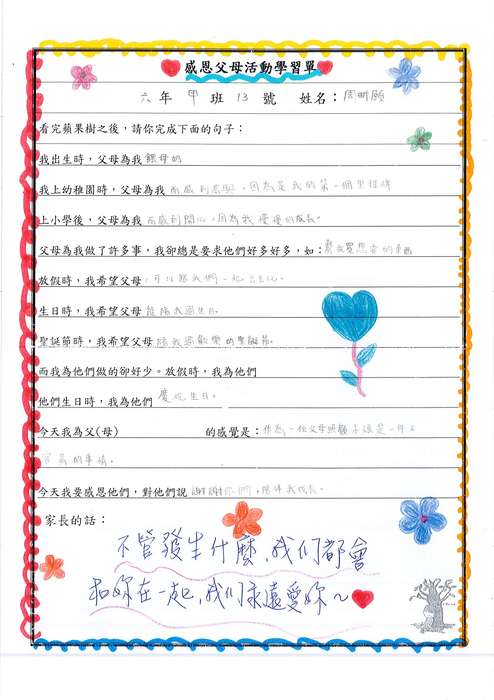 感恩父母活動學習單
六年 甲 班 13 號 姓名：周
看完蘋果樹之後，請你完成下面的句子：
我出生時，父母為我 餵母奶
我上幼稚園時，父母為我 而感到高興，因為是我的第一個里程碑
上小學後，父母為我 而感到開心，因為我慢慢的成長。
父母為我做了許多事，我卻總是要求他們好多好多，如：幫我買想要的東西
放假時，我希望父母 可以跟我們一起去玩。
生日時，我希望父母 能陪我過生日。
聖誕節時，我希望父母 陪我過歡樂的聖誕節。
而我為他們做的卻好少。放假時，我為他們
他們生日時，我為他們 慶祝生日。
今天我為父(母) 的感覺是：作為一位父母照顧小孩是一件不
容易的事情。
今天我要感恩他們，對他們說 謝謝你們，陪伴我成長。
家長的話：
不管發生什麼，我们都會
和妳在一起，我们永遠愛妳～